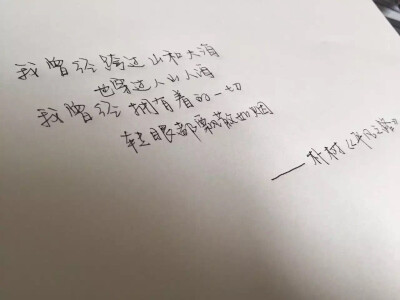 我曾经跨过山和大海
也穿过人山人海
我曾经拥有着的一切
转眼都飘散如烟
——朴树《平凡之路》